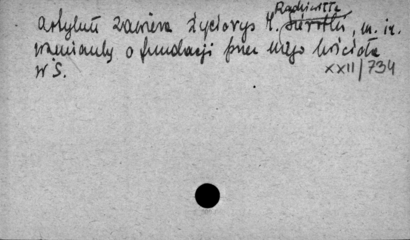 Radziwiłła
Artykuł zawiera życiorys M. Sierotki, m. in.
wzmianki o fundacji przez niego kościoła
w Ś.
XXII/734